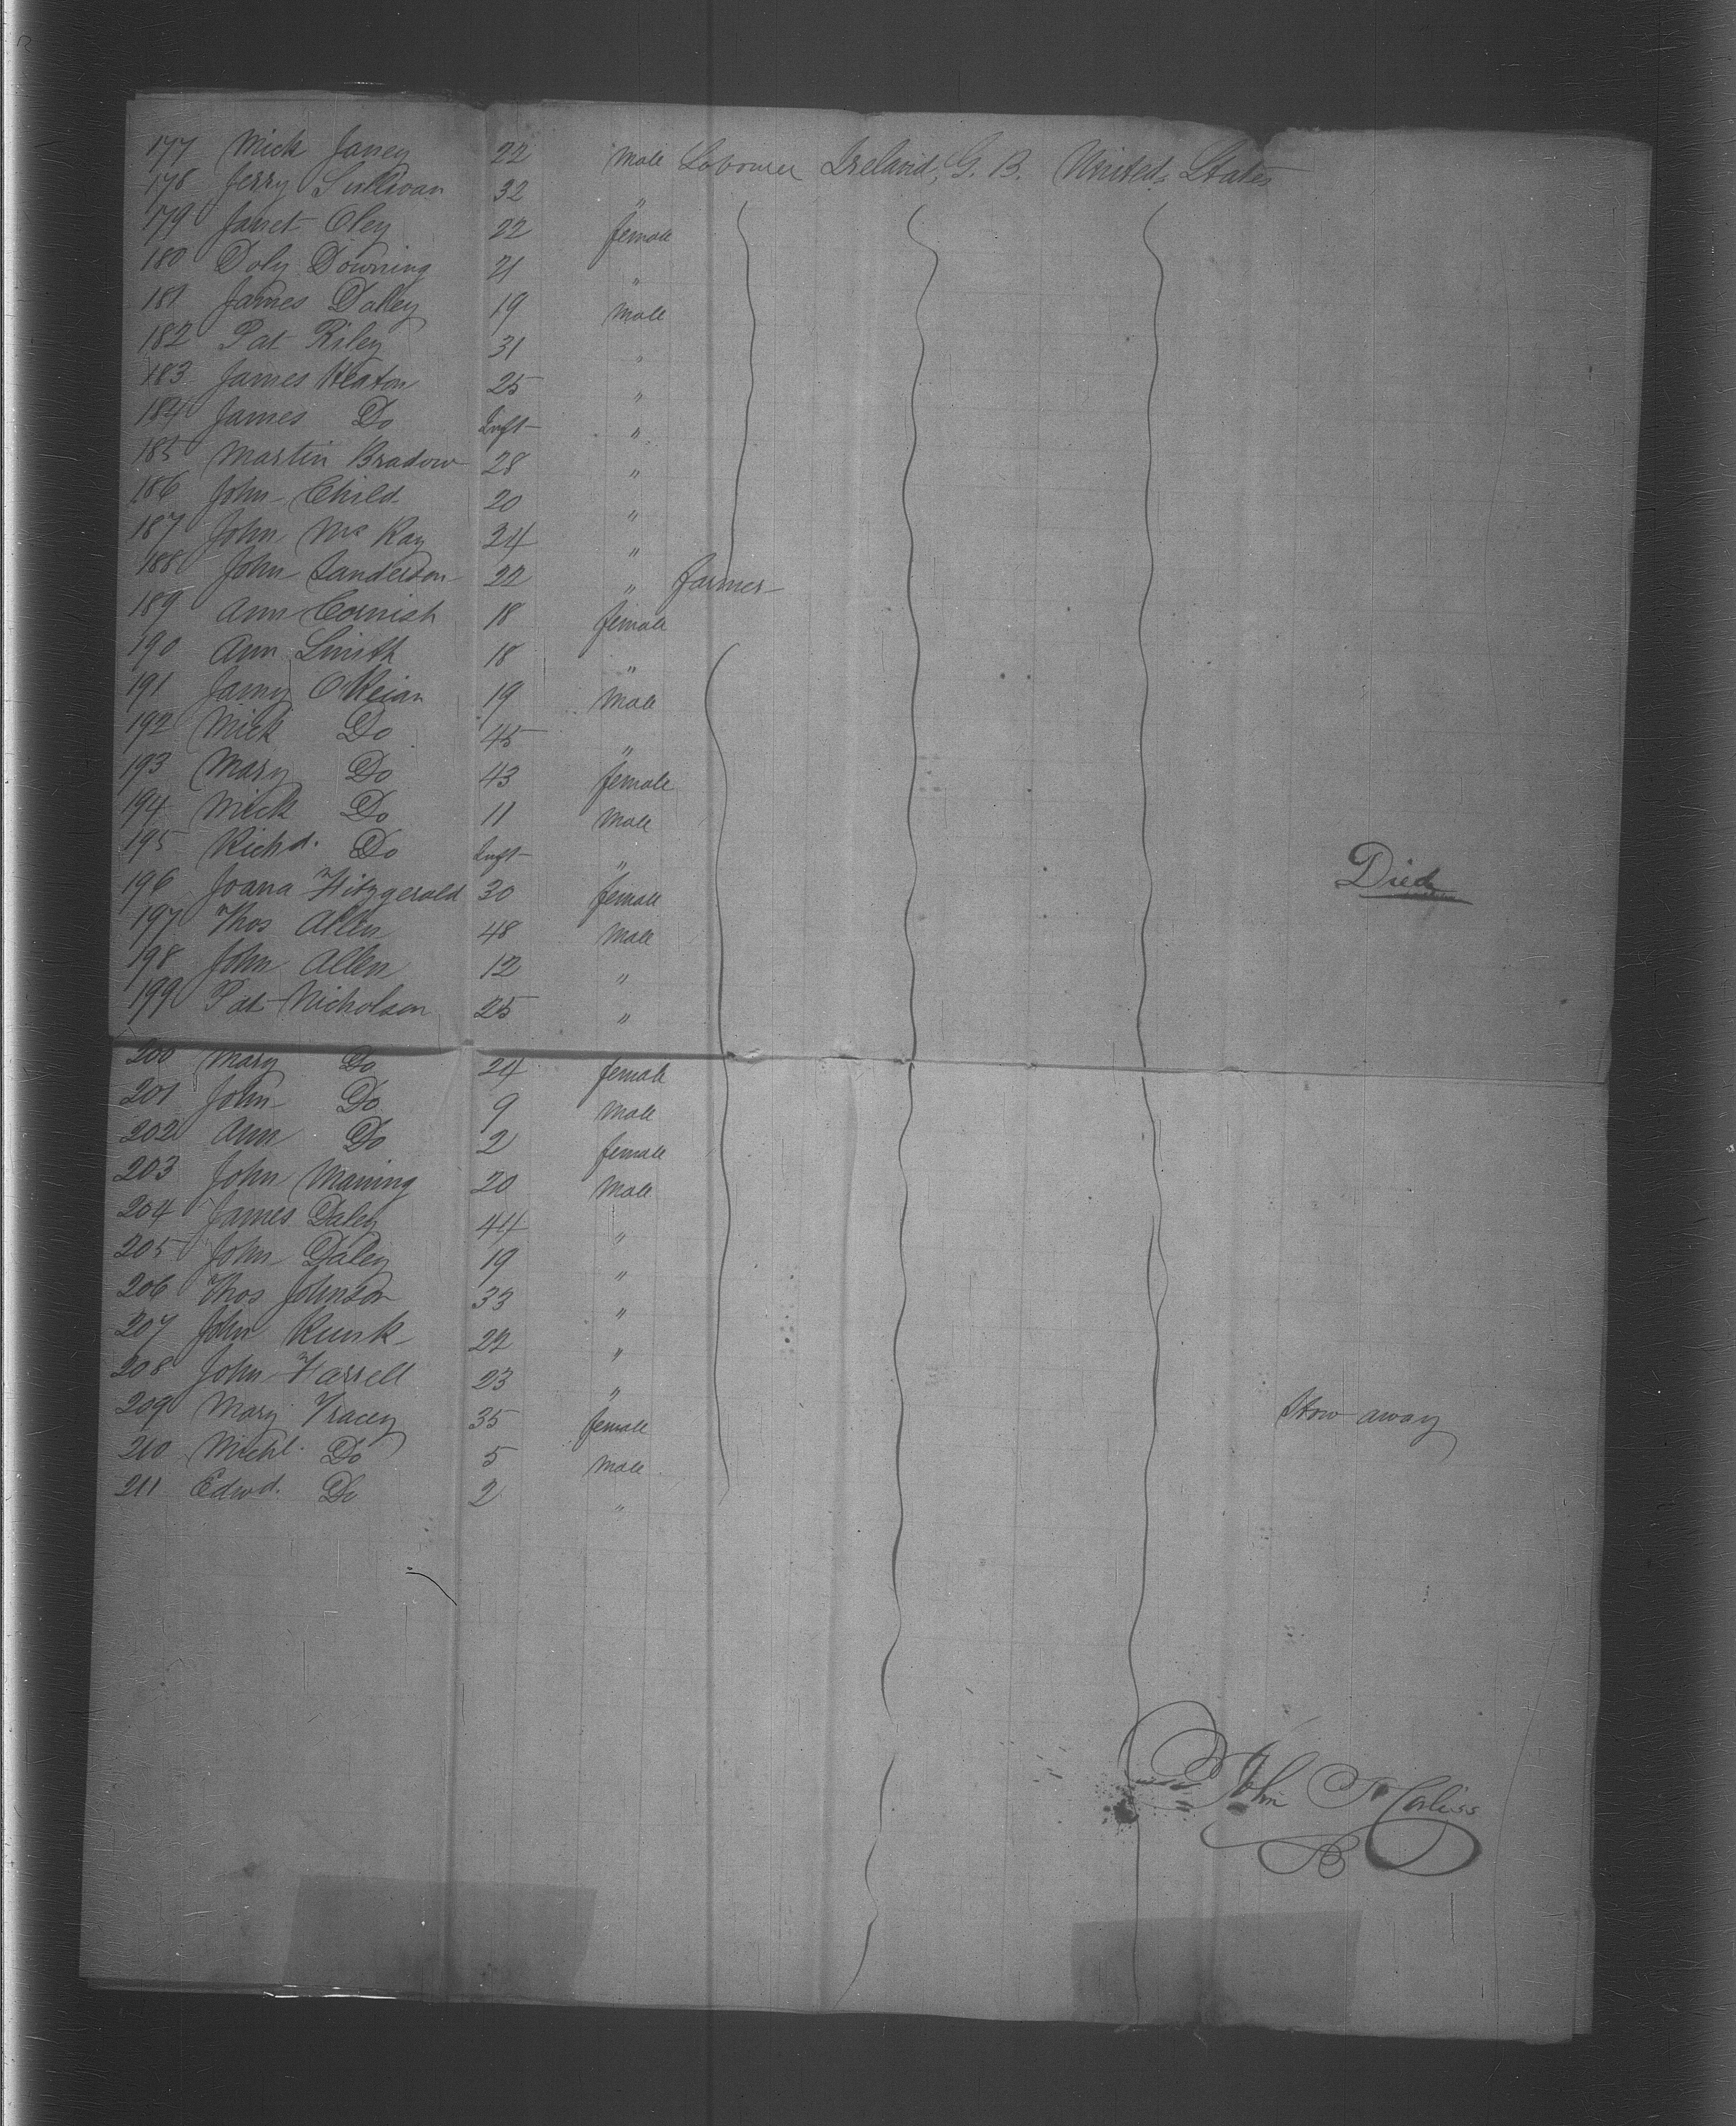 177 Mick Janey 22 Male Labourer Ireland, G. B. United States
178 Jerry Sullivan 32 "
179 Janet Oley 22 female
180 Doly Downing 21 "
181 James Daley 19 Male
182 Pat Riley 31 "
183 James Heaton 25 "
184 James Do Inft "
185 Martin Bradow 28 "
186 John Child 20 "
187 John Mc Kay 24 "
188 John Sanderson 22 " farmer
189 Ann Cornish 18 female
190 Ann Smith 18 "
191 Jamy 19 Male
192 Mick Do 45 "
193 Mary Do 43 female
194 Mick Do 11 Male
195 Richd. Do Inft "  Died
196 Joana Fitzgerald 30 female
197 Thos Allen 48 Male
198 John Allen 12 "
199 Pat Nicholson 25 "
200 Mary Do 24 female
201 John Do 9 Male
202 Ann Do 2 female
203 John Maning 20 Male
204 James Daley 44 "
205 John Daley 19 "
206 Thos Johnson 33 "
207 John 22 "
208 John Farrell 23 "
209 Mary Tracey 35 female Stow away
210 Michl. Do 5 Male
211 Edwd. Do 2 "
John Corliss